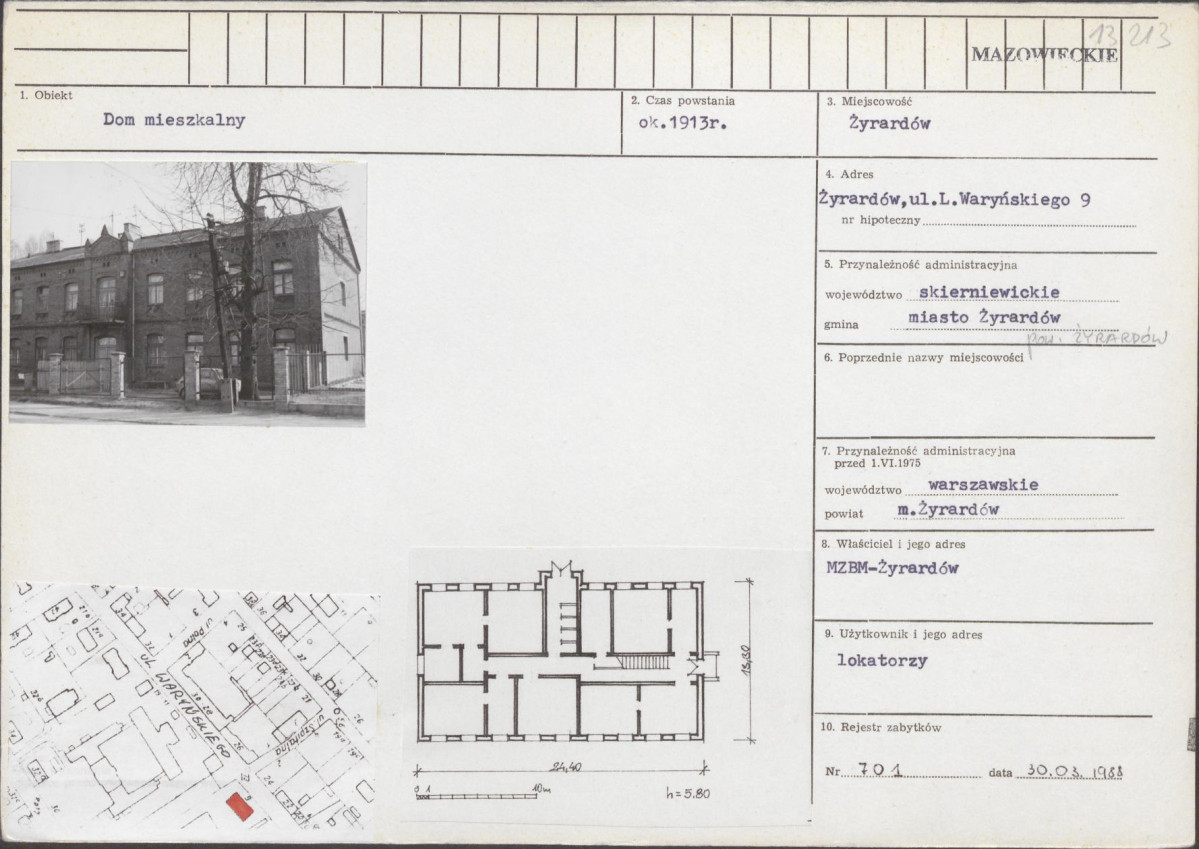 13 213
MAZOWIECKIE
1. Obiekt
Dom mieszkalny
2. Czas powstania
ok.1913r.
3. Miejscowość
Żyrardów
4. Adres
Żyrardów,ul.L.Waryńskiego 9
nr hipoteczny
5. Przynależność administracyjna
województwo skierniewickie
gmina miasto Żyrardów
pow. ŻYRARDÓW
6. Poprzednie nazwy miejscowości
7. Przynależność administracyjna
przed 1.VI.1975
województwo warszawskie
powiat m.Żyrardów
8. Właściciel i jego adres
MZBM-Żyrardów
9. Użytkownik i jego adres
lokatorzy
10. Rejestr zabytków
Nr 701 data 30.03.1988
ul Polna
ul. WARYŃSKIEGO
ul. Szpitalna
13,30
24,40
0 1 10m
h=5.80